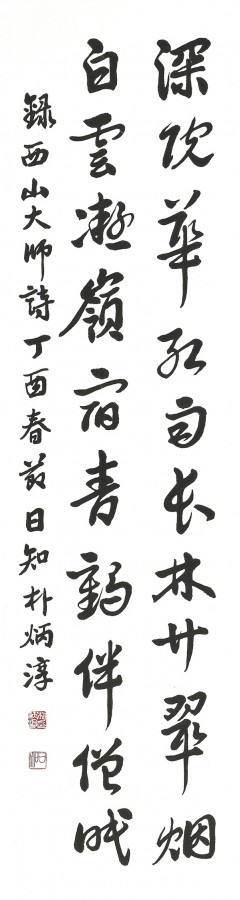 深院華紅雨長林竹翠烟
白雲凝嶺宿青鶴伴僧眠
錄西山大師詩丁酉春節日知朴炳淳